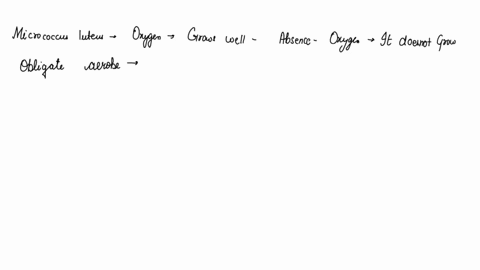 Micrococcus luteus → Oxygen → Grows well - Absence - Oxygen → It doesnot Grow
Obligate aerobe →